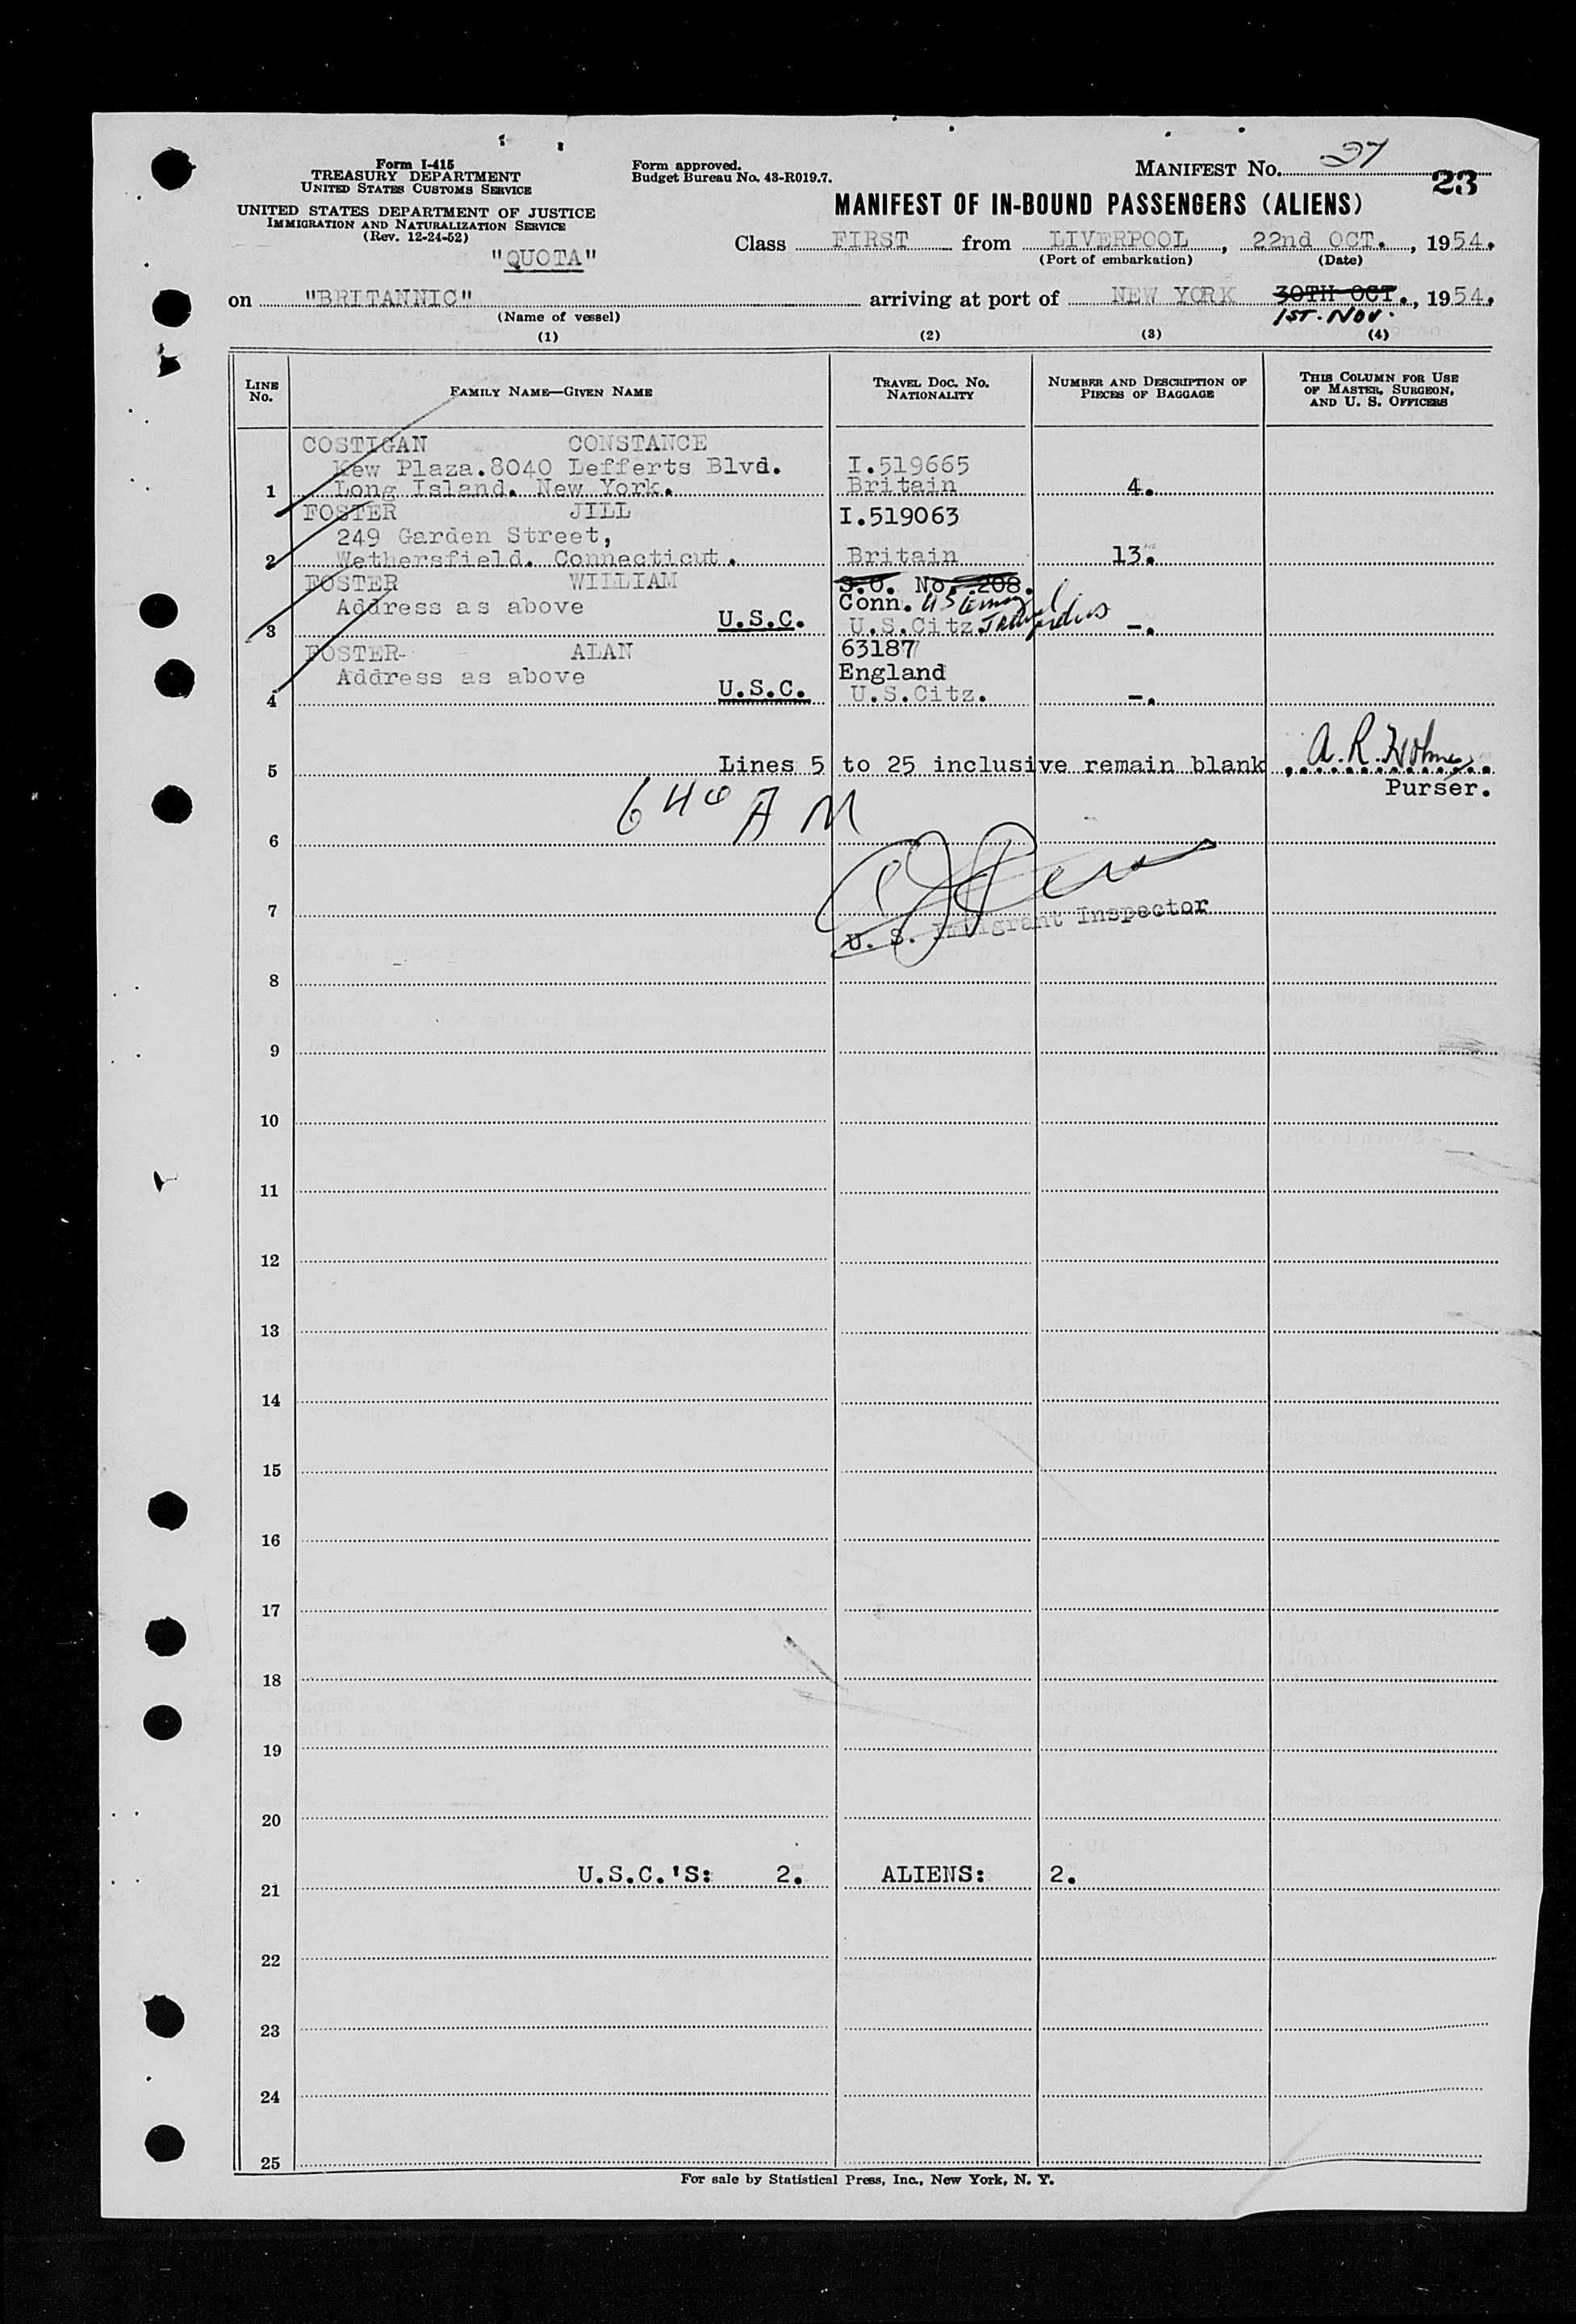 Form I-415
TREASURY DEPARTMENT
UNITED STATES CUSTOMS SERVICE
UNITED STATES DEPARTMENT OF JUSTICE
IMMIGRATION AND NATURALIZATION SERVICE
(Rev. 12-24-52)
"QUOTA"
Form approved.
Budget Bureau No. 43-R019.7.
MANIFEST No. 27
23
MANIFEST OF IN-BOUND PASSENGERS (ALIENS)
Class FIRST from LIVERPOOL, 22nd OCT., 1954.
(Port of embarkation) (Date)
on "BRITANNIC" arriving at port of NEW YORK 30TH OCT., 1954.
(Name of vessel) 1ST. NOV.
(1) (2) (3) (4)
LINE No. FAMILY NAME—GIVEN NAME TRAVEL DOC. No. NATIONALITY NUMBER AND DESCRIPTION OF PIECES OF BAGGAGE THIS COLUMN FOR USE OF MASTER, SURGEON, AND U. S. OFFICERS
COSTIGAN CONSTANCE
Kew Plaza.8040 Lefferts Blvd. I.519665
1 Long Island. New York. Britain 4.
FOSTER JILL I.519063
249 Garden Street,
2 Wethersfield. Connecticut. Britain 13.
FOSTER WILLIAM S.O. No. 208.
Address as above Conn. US
3 U.S.C. U.S.Citz -.
FOSTER ALAN 63187
Address as above England
4 U.S.C. U.S.Citz. -.
5 Lines 5 to 25 inclusive remain blank A. R. Holmes
Purser.
640 A M
6
7
U. S. Immigrant Inspector
8
9
10
11
12
13
14
15
16
17
18
19
20
21 U.S.C.'S: 2. ALIENS: 2.
22
23
24
25
For sale by Statistical Press, Inc., New York, N. Y.